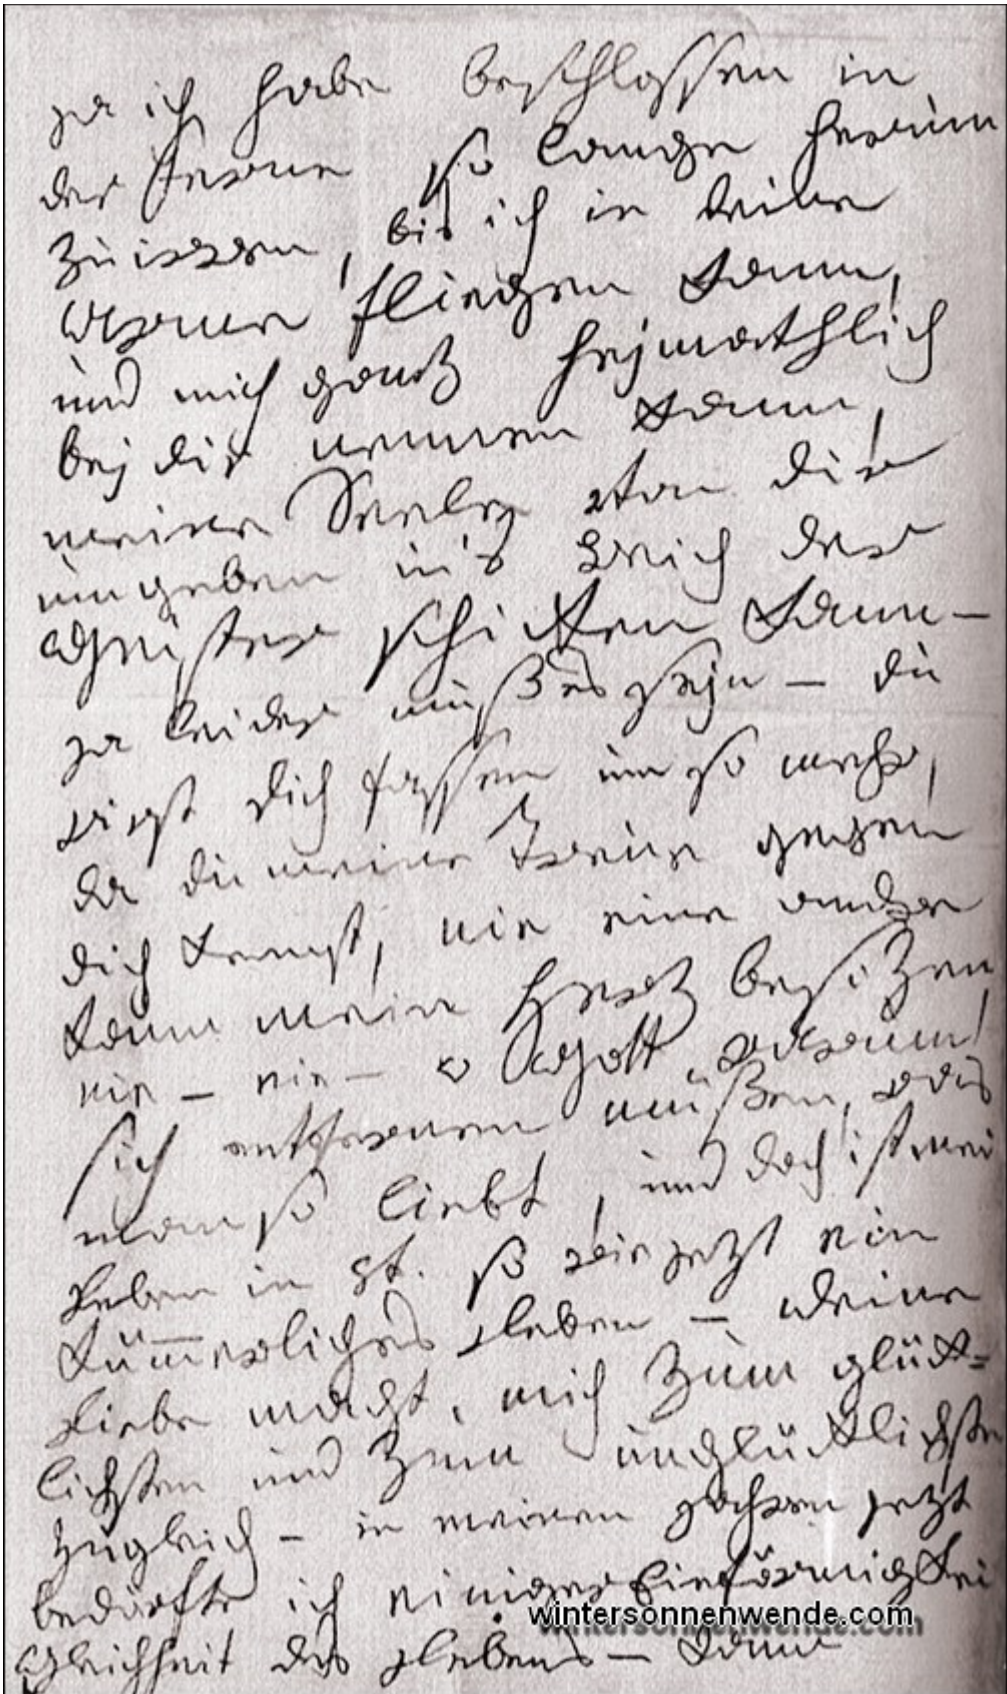 ja ich habe beschlossen in
der Ferne so lange herum
zu irren, bis ich in deine
Arme fliegen kann,
und mich ganz heimathlich
bej dir nennen kann,
meine Seele von dir
umgeben in's Reich der
Geister schicken kann –
ja leider muß es seyn – du
wirst dich fassen um so mehr,
da du meine Treue gegen
dich kennst, nie eine andre
kann mein Herz besizen,
nie – nie – o Gott warum
sich entfernen müßen, was
man so liebt, und doch ist mein
Leben in V. so wie jezt ein
kümmerliches Leben – Deine
Liebe macht mich zum glück=
lichsten und zum unglücklichsten
zugleich – in meinen Jahren jezt
bedürfte ich einiger Einförmigkei
Gleichheit des Lebens – kann
wintersonnenwende.com